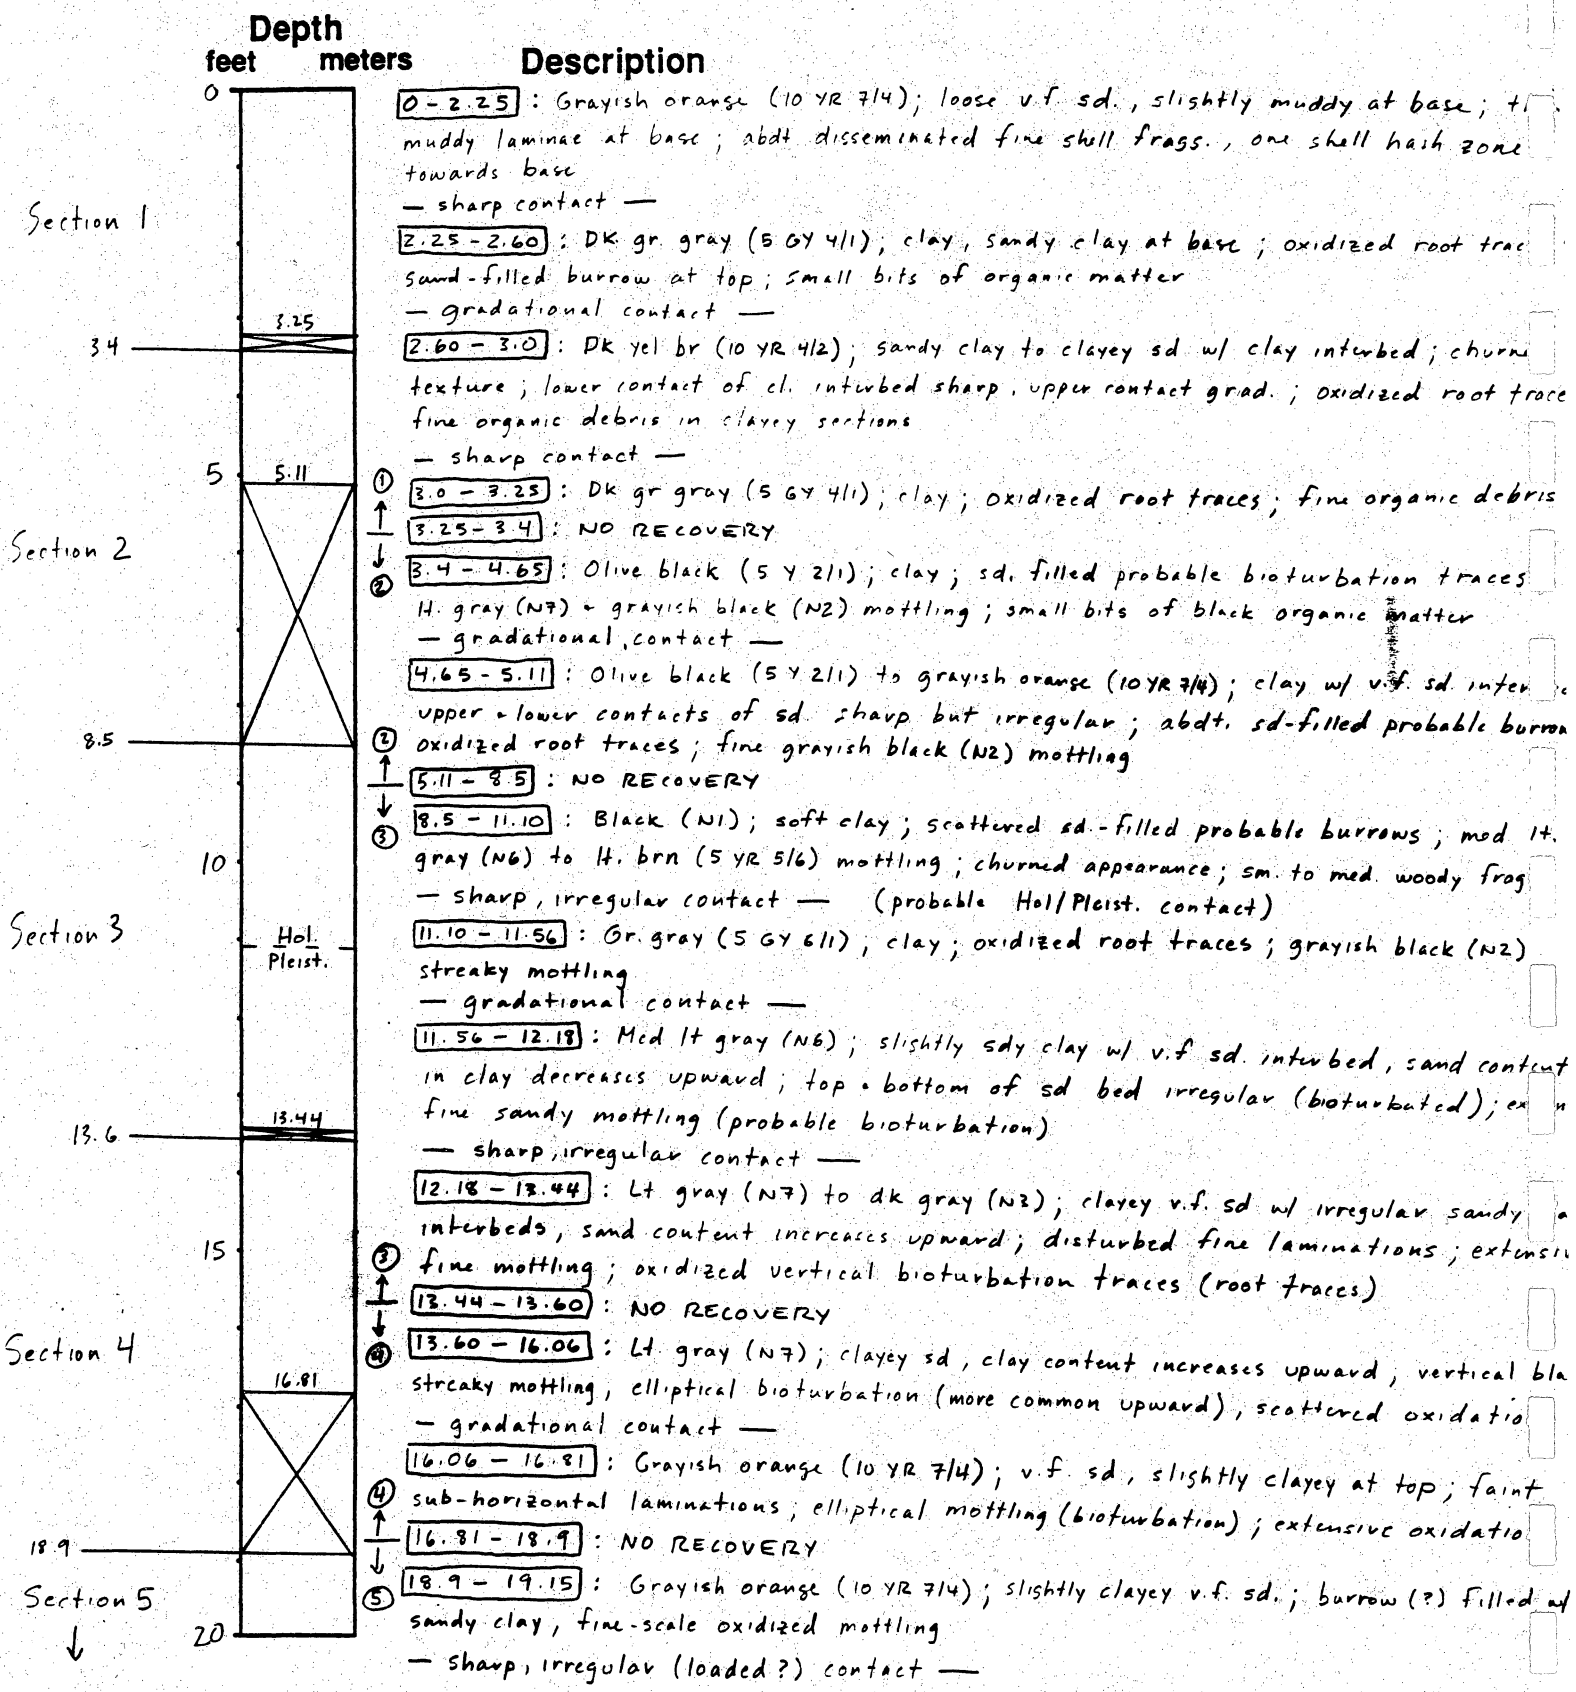 Depth
feet meters Description
0
0 - 2.25 : Grayish orange (10 YR 7/4); loose v.f. sd., slightly muddy at base;
muddy laminae at base; abdt disseminated fine shell frags., one shell hash zone
towards base
— sharp contact —
Section 1
2.25 - 2.60 : DK gr. gray (5 GY 4/1); clay, sandy clay at base; oxidized root trac
sand-filled burrow at top; small bits of organic matter
— gradational contact —
3.25
3.4
2.60 - 3.0 : DK yel br (10 YR 4/2); sandy clay to clayey sd w/ clay interbed; churne
texture; lower contact of cl. interbed sharp, upper contact grad.; oxidized root trace
fine organic debris in clayey sections
— sharp contact —
5 5.11
① 3.0 - 3.25 : DK gr gray (5 GY 4/1); clay; oxidized root traces; fine organic debris
↑ 3.25 - 3.4 : NO RECOVERY
Section 2
↓ ② 3.4 - 4.65 : Olive black (5 Y 2/1); clay; sd. filled probable bioturbation traces
lt. gray (N7) + grayish black (N2) mottling; small bits of black organic matter
— gradational contact —
4.65 - 5.11 : Olive black (5 Y 2/1) to grayish orange (10 YR 7/4); clay w/ v.f. sd. inter
upper + lower contacts of sd. sharp but irregular; abdt. sd-filled probable burrow
8.5
② oxidized root traces; fine grayish black (N2) mottling
↑ 5.11 - 8.5 : NO RECOVERY
↓ ③ 8.5 - 11.10 : Black (N1); soft clay; scattered sd-filled probable burrows; mod lt.
10
gray (N6) to lt. brn (5 YR 5/6) mottling; churned appearance; sm. to med. woody frag
— sharp, irregular contact — (probable Hol/Pleist. contact)
Section 3
Hol.
Pleist.
11.10 - 11.56 : Gr. gray (5 GY 6/1); clay; oxidized root traces; grayish black (N2)
streaky mottling
— gradational contact —
11.56 - 12.18 : Med lt gray (N6); slightly sdy clay w/ v.f sd. interbed, sand content
in clay decreases upward; top + bottom of sd bed irregular (bioturbated);
fine sandy mottling (probable bioturbation)
13.44
13.6
— sharp, irregular contact —
12.18 - 13.44 : Lt gray (N7) to dk gray (N3); clayey v.f. sd w/ irregular sandy
interbeds, sand content increases upward; disturbed fine laminations; extensiv
15
③ fine mottling; oxidized vertical bioturbation traces (root traces)
↑ 13.44 - 13.60 : NO RECOVERY
Section 4
↓ ④ 13.60 - 16.06 : Lt. gray (N7); clayey sd, clay content increases upward; vertical bla
streaky mottling, elliptical bioturbation (more common upward), scattered oxidatio
16.81
— gradational contact —
16.06 - 16.81 : Grayish orange (10 YR 7/4); v.f. sd, slightly clayey at top; faint
④ sub-horizontal laminations; elliptical mottling (bioturbation); extensive oxidatio
↑ 16.81 - 18.9 : NO RECOVERY
18.9
↓ ⑤ 18.9 - 19.15 : Grayish orange (10 YR 7/4); slightly clayey v.f. sd.; burrow (?) filled w/
Section 5
sandy clay, fine-scale oxidized mottling
20
↓
— sharp, irregular (loaded?) contact —